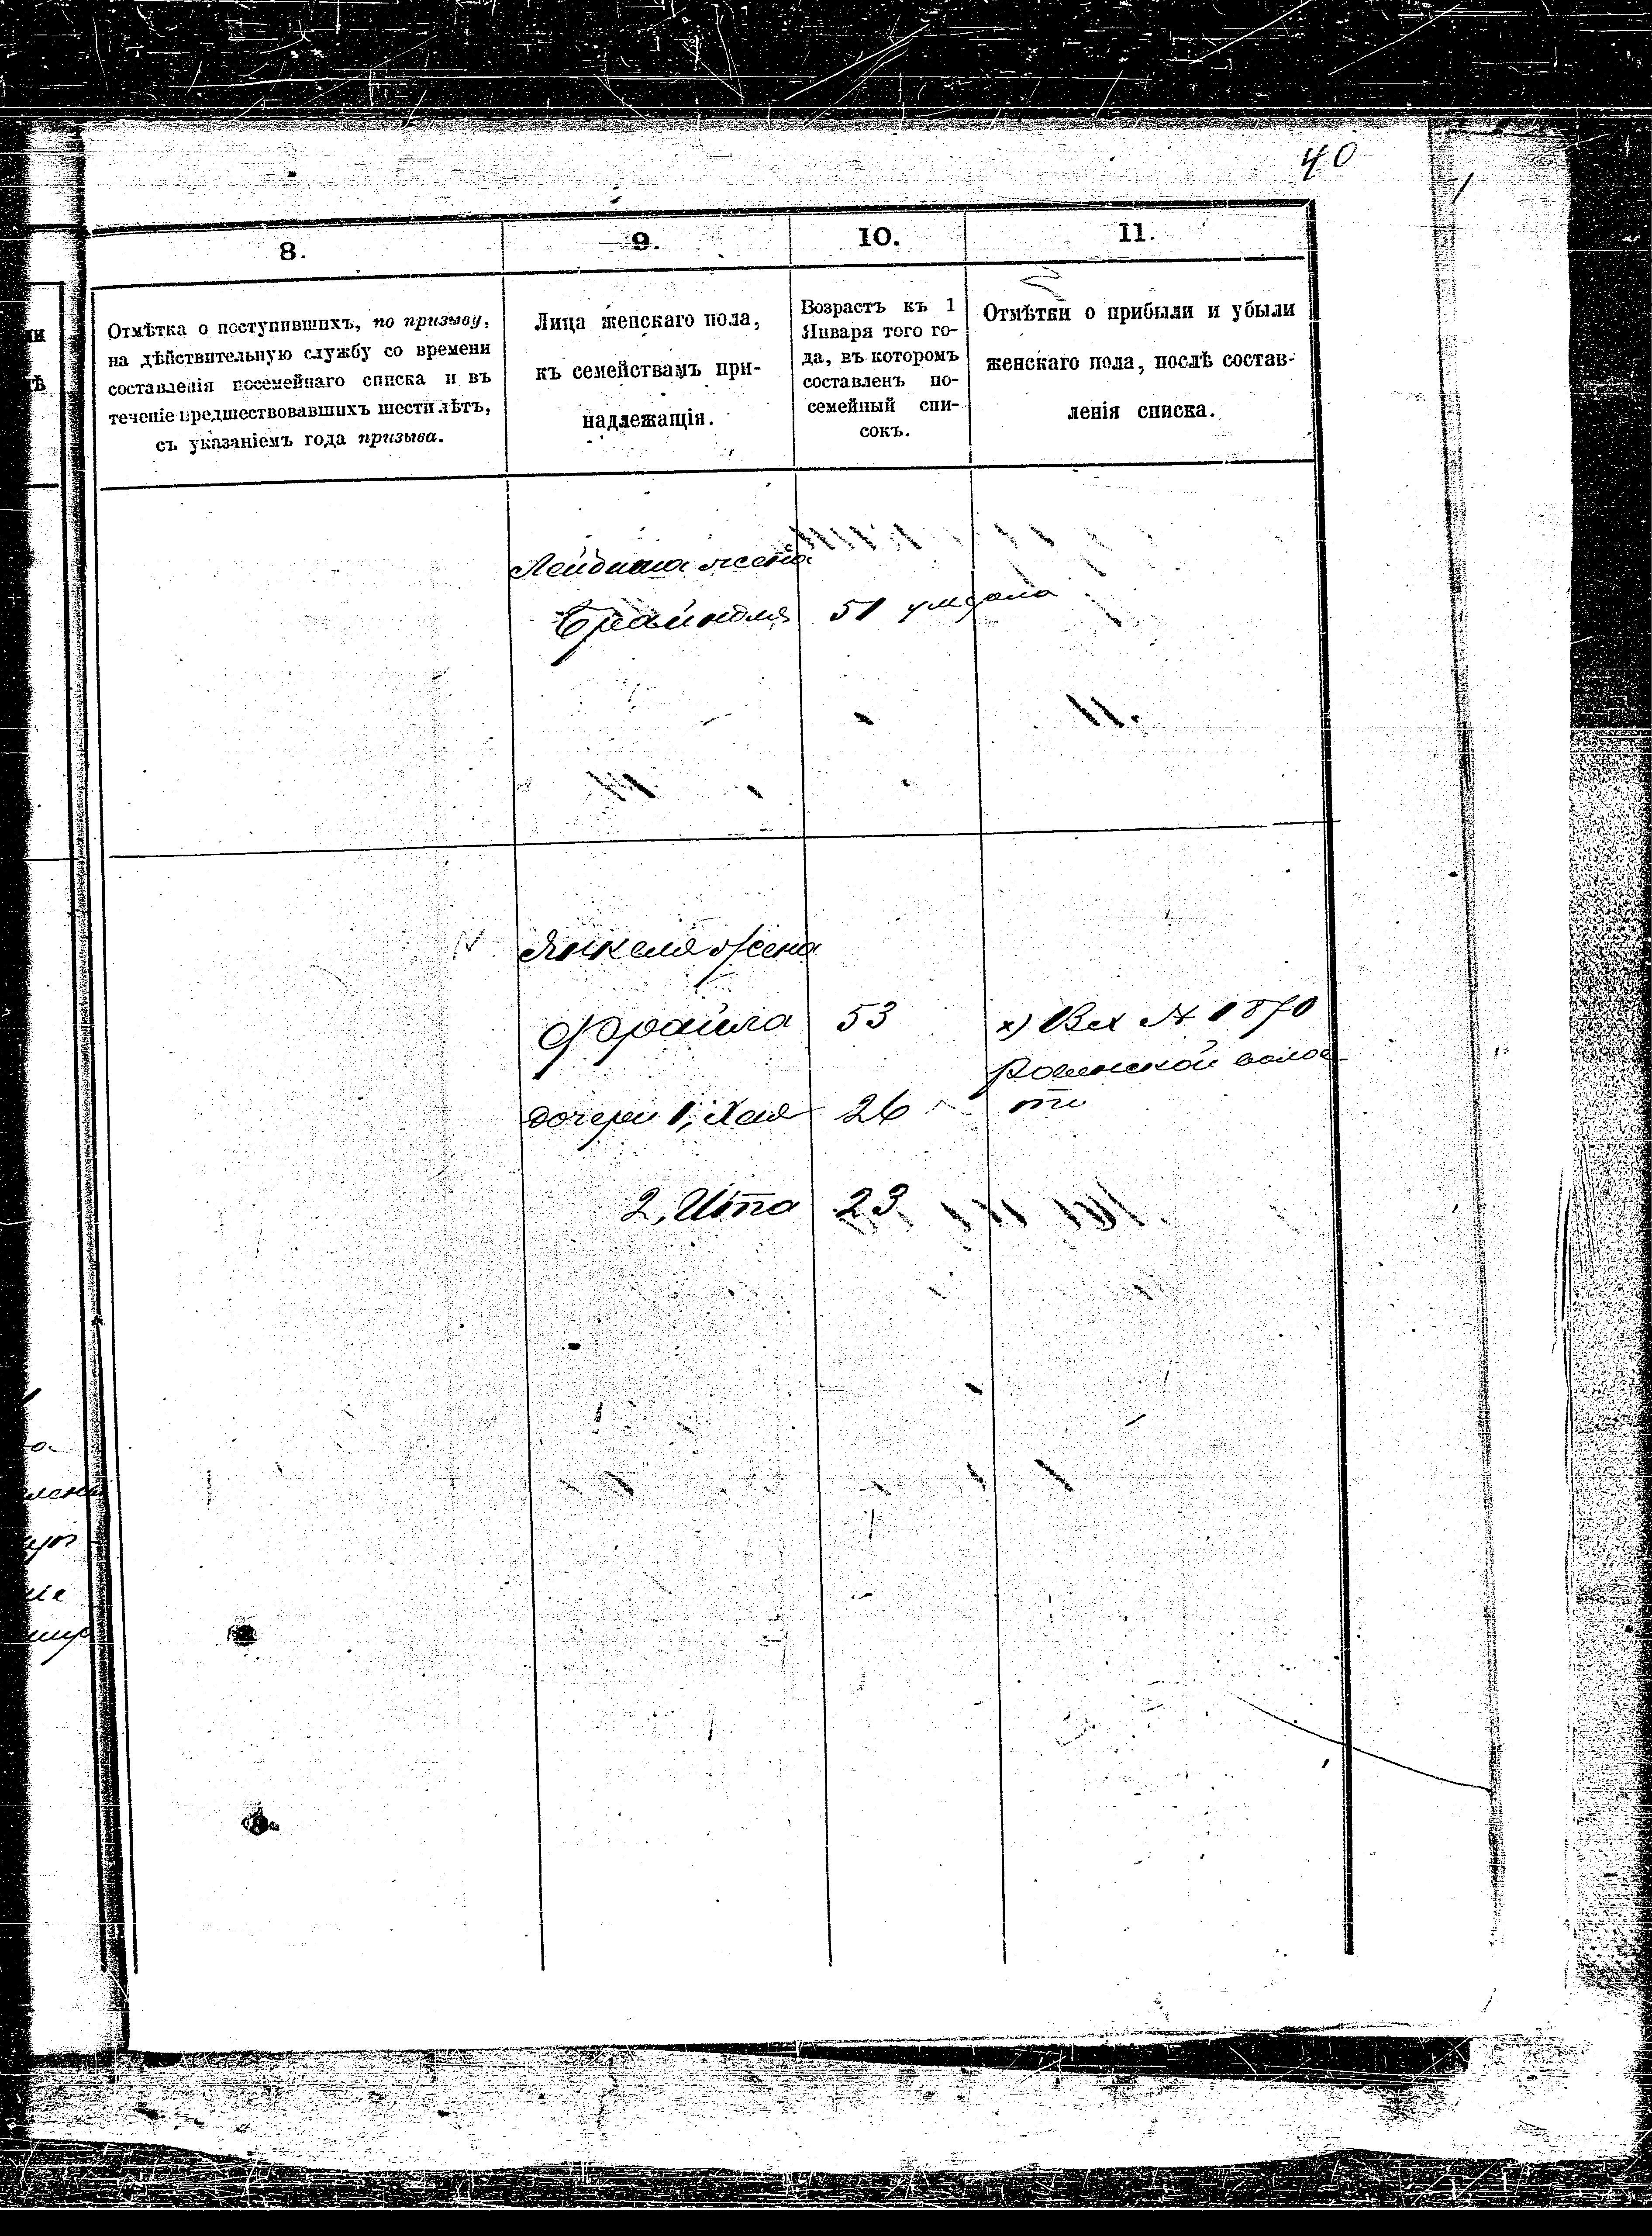 40
8.
9.
10.
11.
Отмѣтка о поступившихъ, по призыву,
на дѣйствительную службу со времени
составленія посемейнаго списка и въ
теченіе предшествовавшихъ шести лѣтъ,
съ указаніемъ года призыва.
Лица женскаго пола,
къ семействамъ при-
надлежащія.
Возрастъ къ 1
Января того го-
да, въ которомъ
составленъ по-
семейный спи-
сокъ.
Отмѣтки о прибыли и убыли
женскаго пола, послѣ состав-
ленія списка.
жена
51 умерла
Янкеля жена
Фрайла 53
х) Вх № 1870
волос-
ти
дочери 1, Хая 26
2, Ита 23